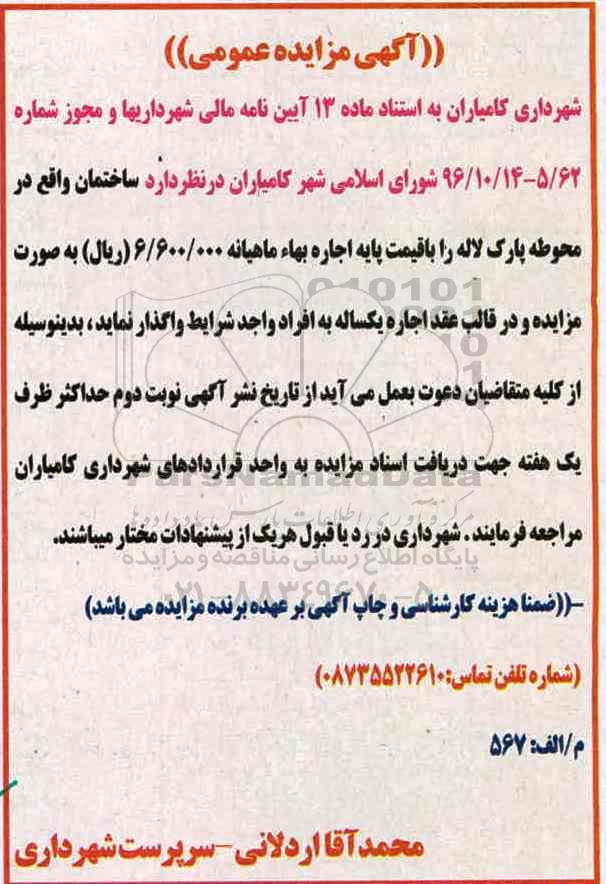 ((آگهی مزایده عمومی))
شهرداری کامیاران به استناد ماده ۱۳ آیین نامه مالی شهرداریها و مجوز شماره
۵/۶۲-۹۶/۱۰/۱۴ شورای اسلامی شهر کامیاران درنظردارد ساختمان واقع در
محوطه پارک لاله را باقیمت پایه اجاره بهاء ماهیانه ۶/۶۰۰/۰۰۰ (ریال) به صورت
مزایده و در قالب عقد اجاره یکساله به افراد واجد شرایط واگذار نماید، بدینوسیله
از کلیه متقاضیان دعوت بعمل می آید از تاریخ نشر آگهی نوبت دوم حداکثر ظرف
یک هفته جهت دریافت اسناد مزایده به واحد قراردادهای شهرداری کامیاران
مراجعه فرمایند. شهرداری در رد یا قبول هریک از پیشنهادات مختار میباشند.
-((ضمنا هزینه کارشناسی و چاپ آگهی بر عهده برنده مزایده می باشد)
(شماره تلفن تماس:۰۸۷۳۵۵۲۲۶۱۰)
م/الف: ۵۶۷
محمدآقا اردلانی -سرپرست شهرداری
ParsNamadData
پایگاه اطلاع رسانی مناقصه و مزایده
۰۲۱-۸۸۳۴۹۶۷۰-۵